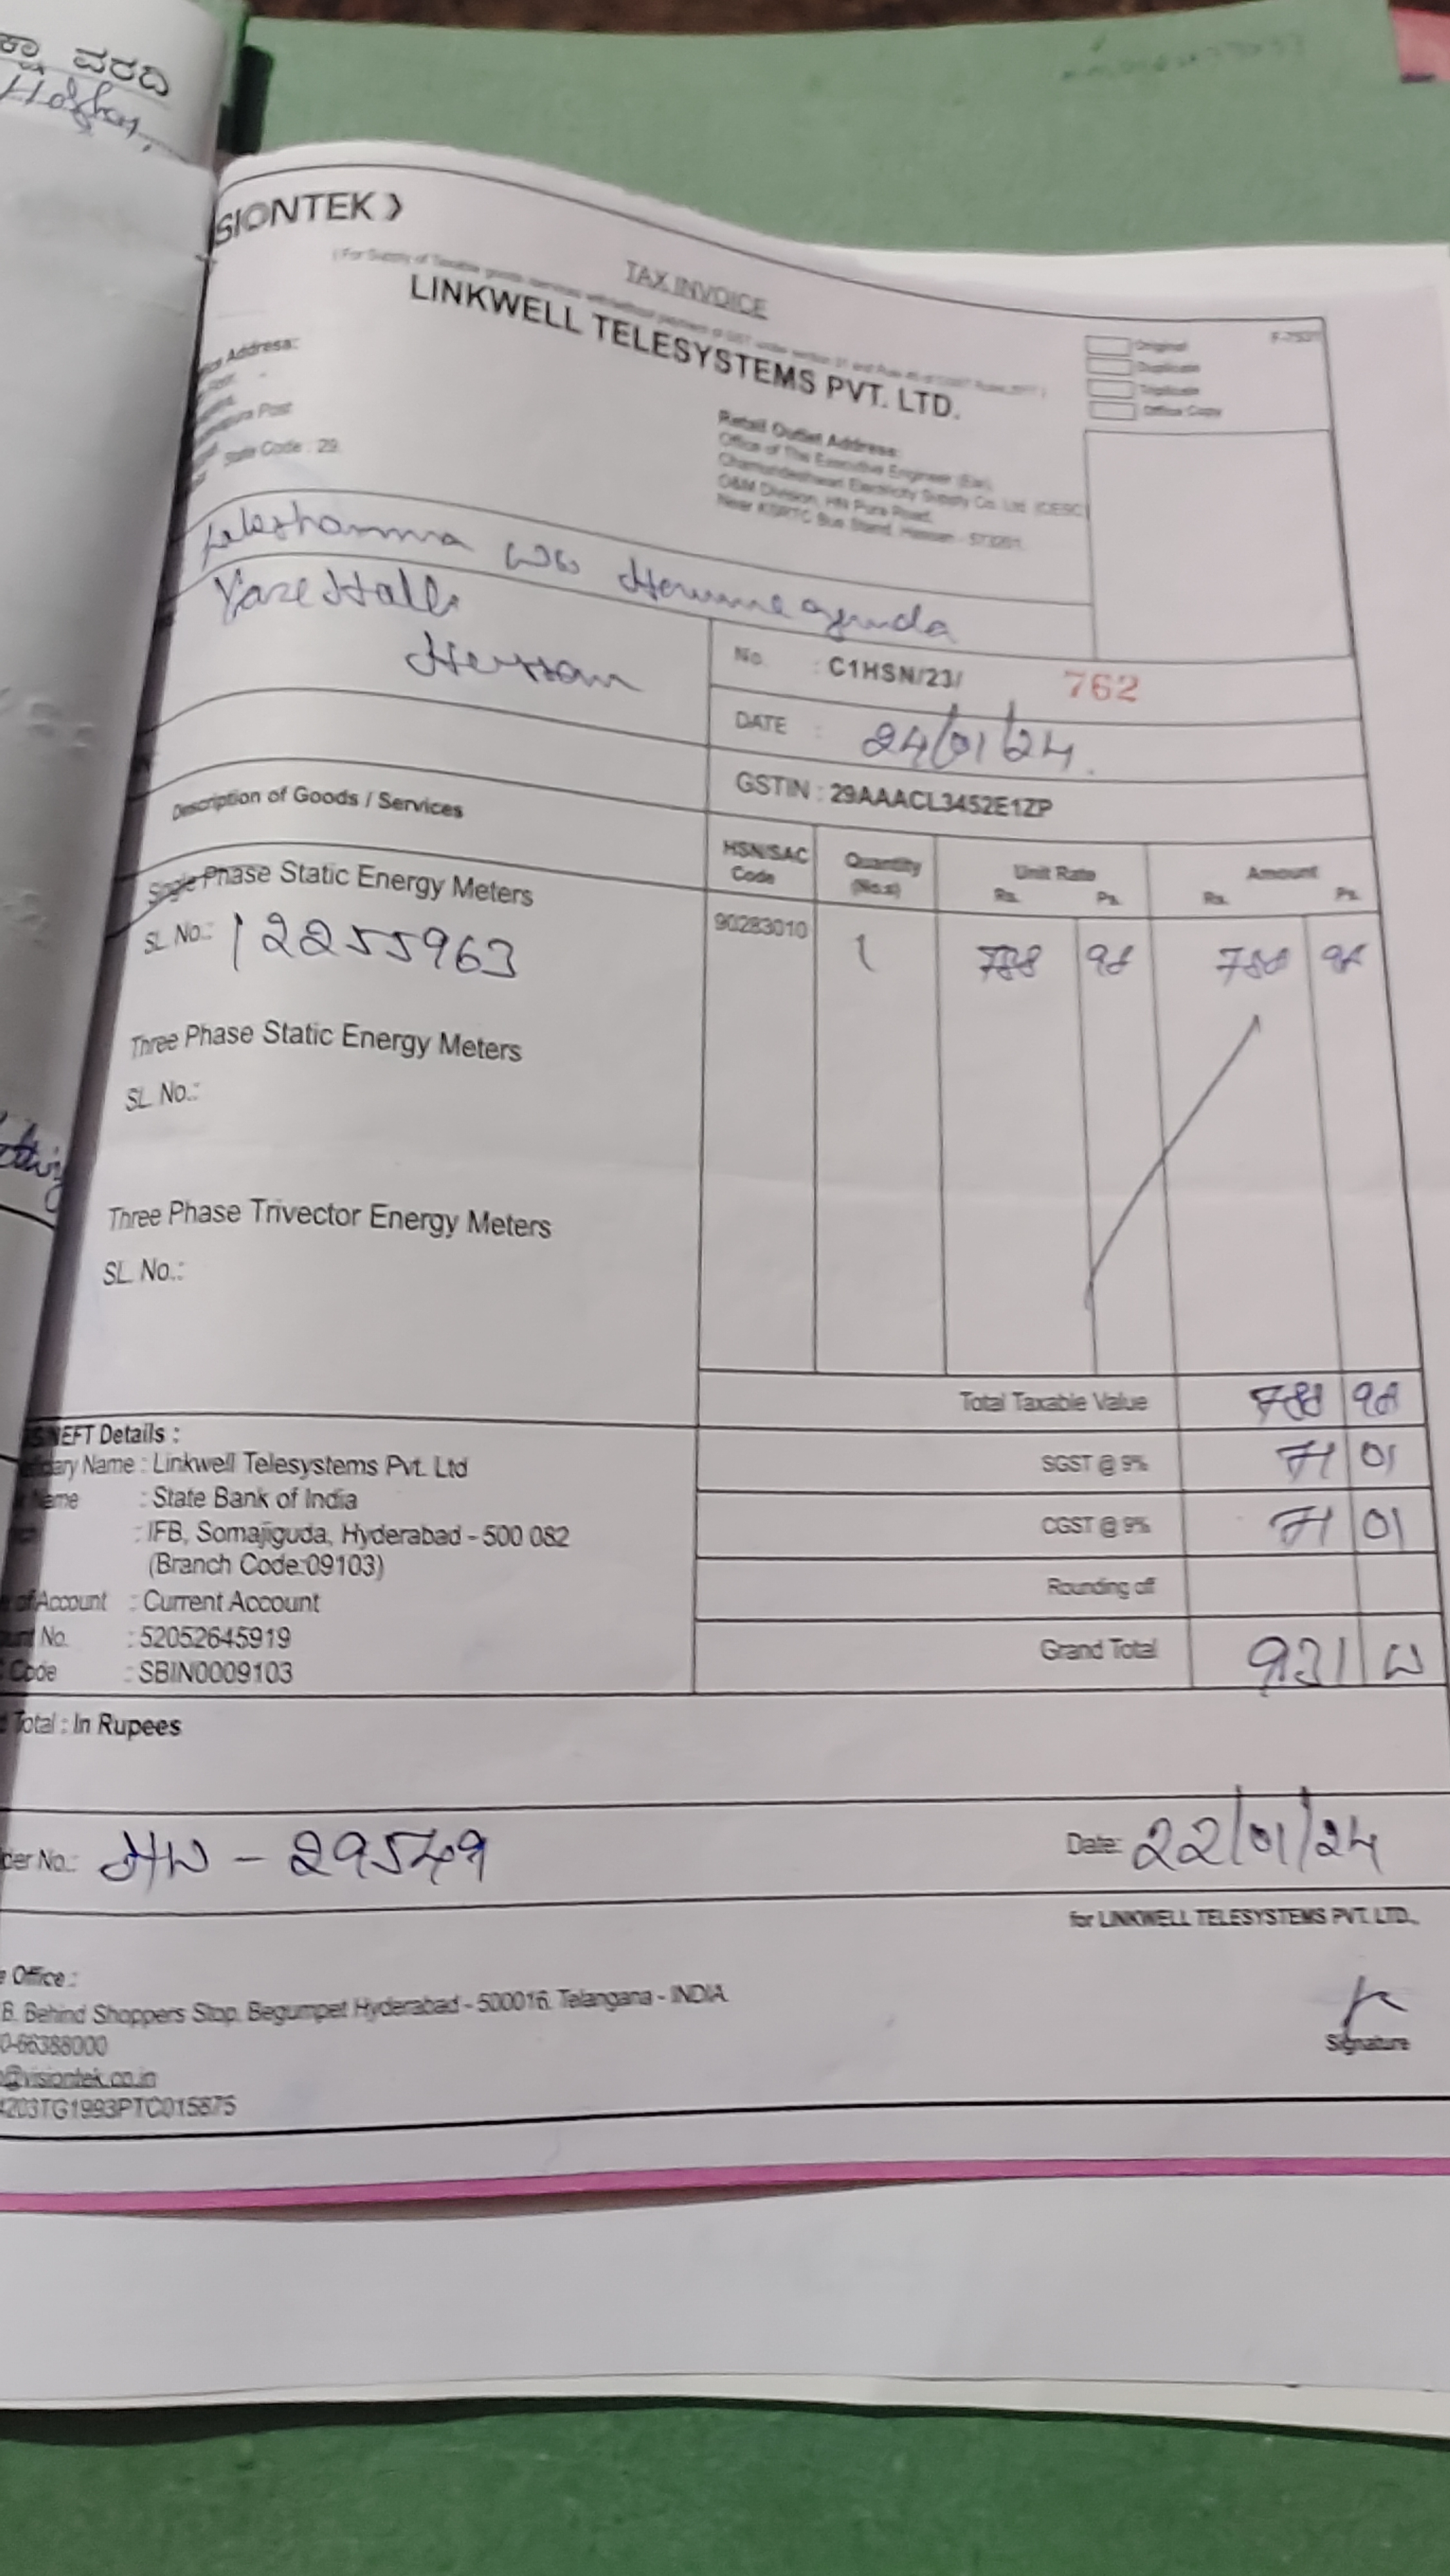 ವರದಿ
SIONTEK
TAX INVOICE
LINKWELL TELESYSTEMS PVT. LTD.
F-7537
Original
Duplicate
Triplicate
Office Copy
Address:
Post
State Code : 29
Retail Outlet Address:
Office of The Executive Engineer (Ele),
Chamundeshwari Electricity Supply Co. Ltd. (CESC)
O&M Division, HN Pura Road,
Near KSRTC Bus Stand, Hassan - 573201.
Hassan
No. : C1HSN/23/ 762
DATE : 24/01/24.
GSTIN : 29AAACL3452E1ZP
Description of Goods / Services
HSN/SAC Code
Quantity (No.s)
Unit Rate
Rs. Ps.
Amount
Rs. Ps.
Single Phase Static Energy Meters
SL No.: 12255963
90283010 1 788 98 788 98
Three Phase Static Energy Meters
SL No.:
Three Phase Trivector Energy Meters
SL No.:
Total Taxable Value 788 98
SGST @ 9% 71 01
CGST @ 9% 71 01
Rounding off
Grand Total 931 00
NEFT Details :
Name : Linkwell Telesystems Pvt. Ltd
Name : State Bank of India
: IFB, Somajiguda, Hyderabad - 500 082
(Branch Code:09103)
of Account : Current Account
No. : 52052645919
Code : SBIN0009103
Total : In Rupees
der No.: HW - 29549
Date: 22/01/24
for LINKWELL TELESYSTEMS PVT. LTD.,
Office :
B, Behind Shoppers Stop, Begumpet Hyderabad - 500016, Telangana - INDIA.
0-66388000
@visiontek.co.in
4203TG1993PTC015875
Signature